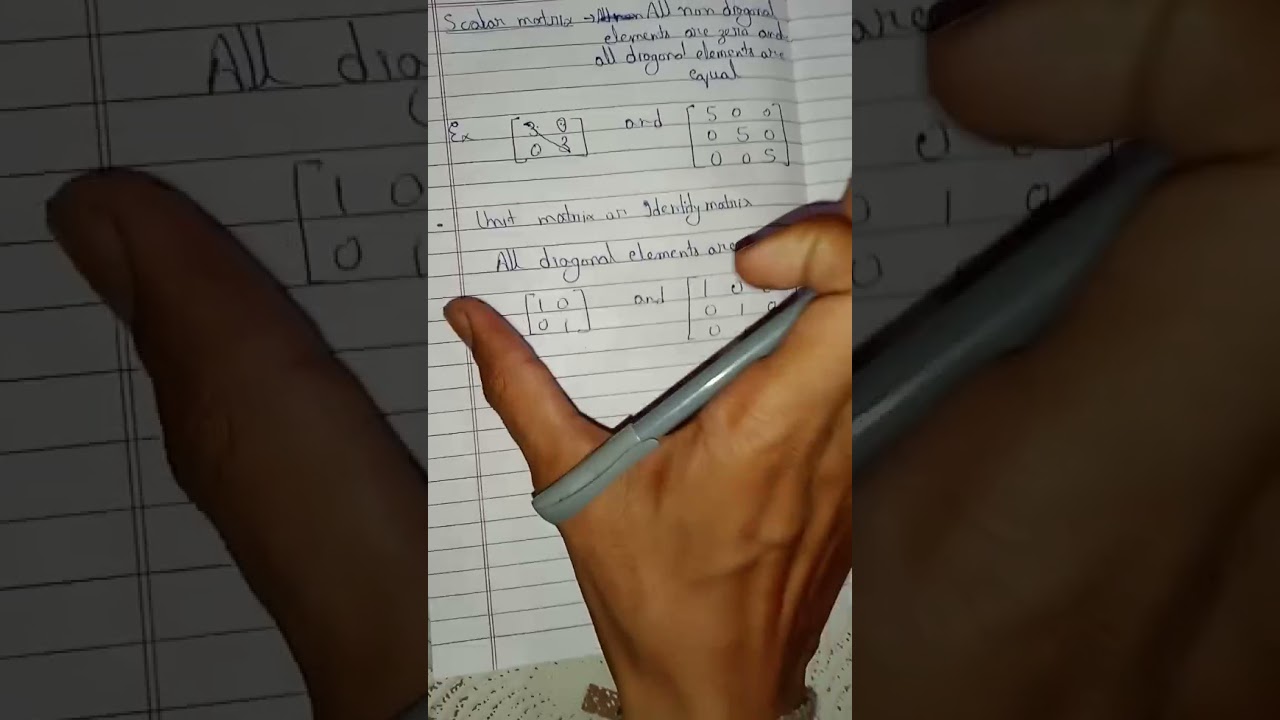 Scalar matrix → All non diagonal
elements are zero and
all diagonal elements are
equal
Ex [ 0 ] and [5 0 0]
[0 ] [0 5 0]
[0 0 5]
• Unit matrix or Identity matrix
All diagonal elements are
[1 0] and [1 0
[0 1] [0 1 0
[0